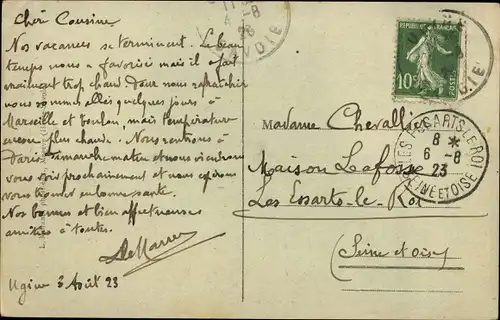 Chère Cousine
Nos vacances se terminent. Le beau
temps nous a favorisé mais il a fait
vraiment trop chaud. Pour nous rafraichir
nous sommes allés quelques jours à
Marseille et Toulon, mais température
encore plus chaude. Nous rentrons à
Paris dimanche matin et nous viendrons
vous voir prochainement et nous espérons
vous trouver en bonne santé.
Nos bonnes et bien affectueuses
amitiés à toutes.
Ugine 3 Août 23
Madame Chevallier
Maison Lafosse
Les Essarts-le-Roi
(Seine et Oise)
REPUBLIQUE FRANÇAISE
10c
POSTES
LES ESSARTS-LE-ROI
8 *
6 -8
23
SEINE ET OISE